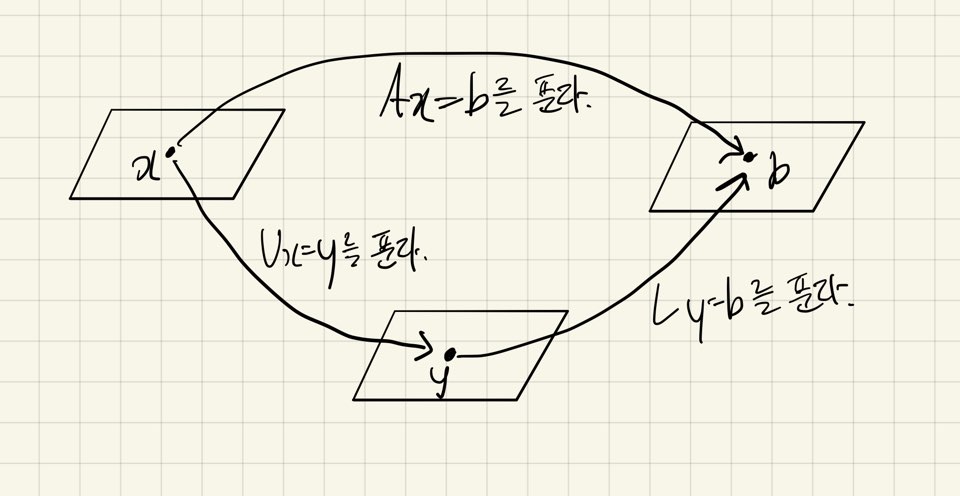 Ax=b를 푼다.
x
b
Ux=y를 푼다.
Ly=b를 푼다.
y